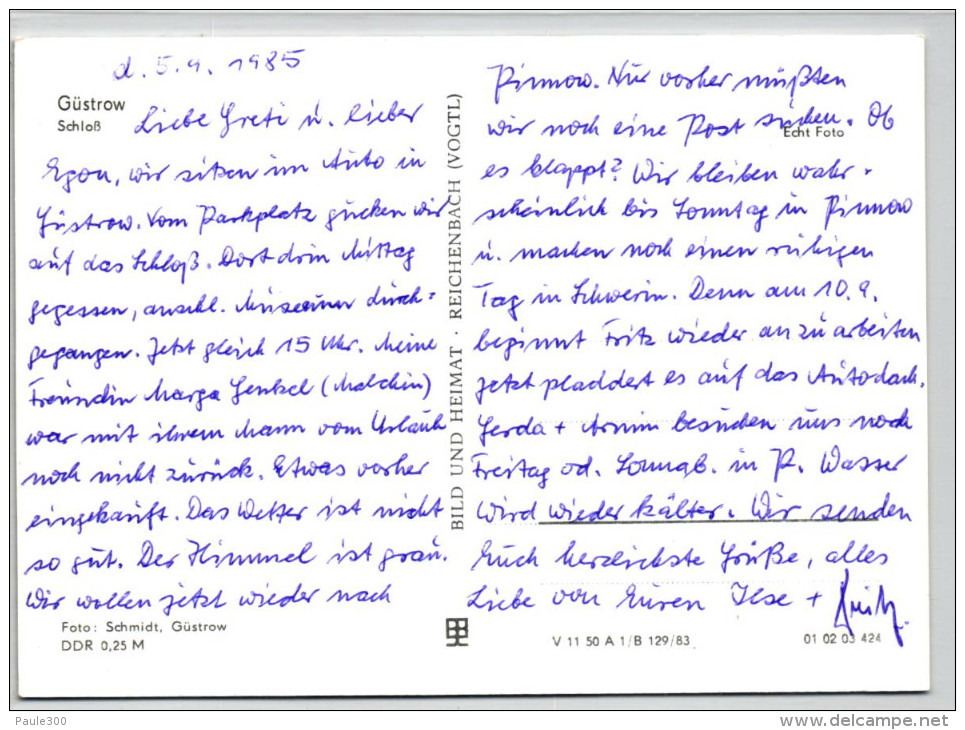 d. 5.9. 1985
Güstrow
Schloß
Liebe Greti u. lieber
Egon, wir sitzen im Auto in
Güstrow. Vom Parkplatz gucken wir
auf das Schloß. Dort drin Mittag
gegessen, anschl. Museum durch=
gegangen. Jetzt gleich 15 Uhr. Meine
Freundin Marga Henkel (Malchin)
war mit ihrem Mann vom Urlaub
noch nicht zurück. Etwas vorher
eingekauft. Das Wetter ist nicht
so gut. Der Himmel ist grau.
Wir wollen jetzt wieder nach
Foto: Schmidt, Güstrow
DDR 0,25 M
BILD UND HEIMAT · REICHENBACH (VOGTL)
Pinnow. Nur vorher müßten
wir noch eine Post suchen. Ob
Echt Foto
es klappt? Wir bleiben wahr-
scheinlich bis Sonntag in Pinnow
u. machen noch einen ruhigen
Tag in Schwerin. Denn am 10.9.
beginnt Fritz wieder an zu arbeiten
jetzt pladdert es auf das Autodach.
Gerda + Armin besuchen uns noch
Freitag od. Sonnab. in P. Wasser
wird wieder kälter. Wir senden
Euch herzlichste Grüße, alles
Liebe von Euren Ilse + Fritz.
V 11 50 A 1/B 129/83
01 02 03 424
Paule300
www.delcampe.net